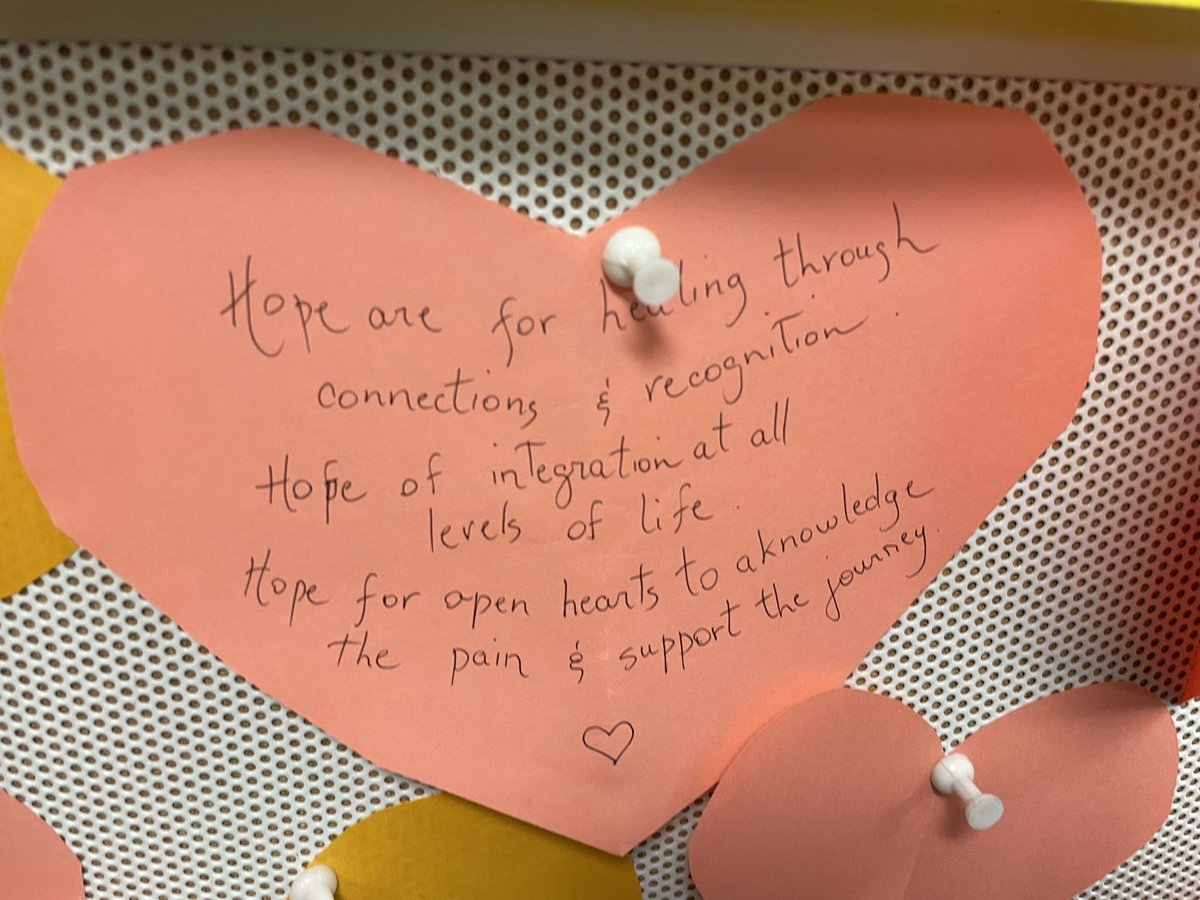 Hope are for healing through
connections & recognition.
Hope of integration at all
levels of life.
Hope for open hearts to aknowledge
the pain & support the journey.